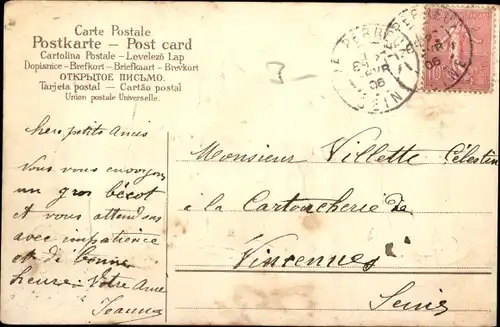 Carte Postale
Postkarte – Post card
Cartolina Postale – Levelező Lap
Dopisnice – Brefkort – Briefkaart – Brevkort
ОТКРЫТОЕ ПИСЬМО.
Tarjeta postal – Cartão postal
Union postale Universelle.
3
06
SEINE
10
chers petits Amis
Vous vous envoyons
un gros bécot
et vous attendons
avec impatience
et de bonne
heure. Votre Amie
Jeanne
Monsieur Villette Célestin
à la Cartoucherie de
Vincennes
Seine